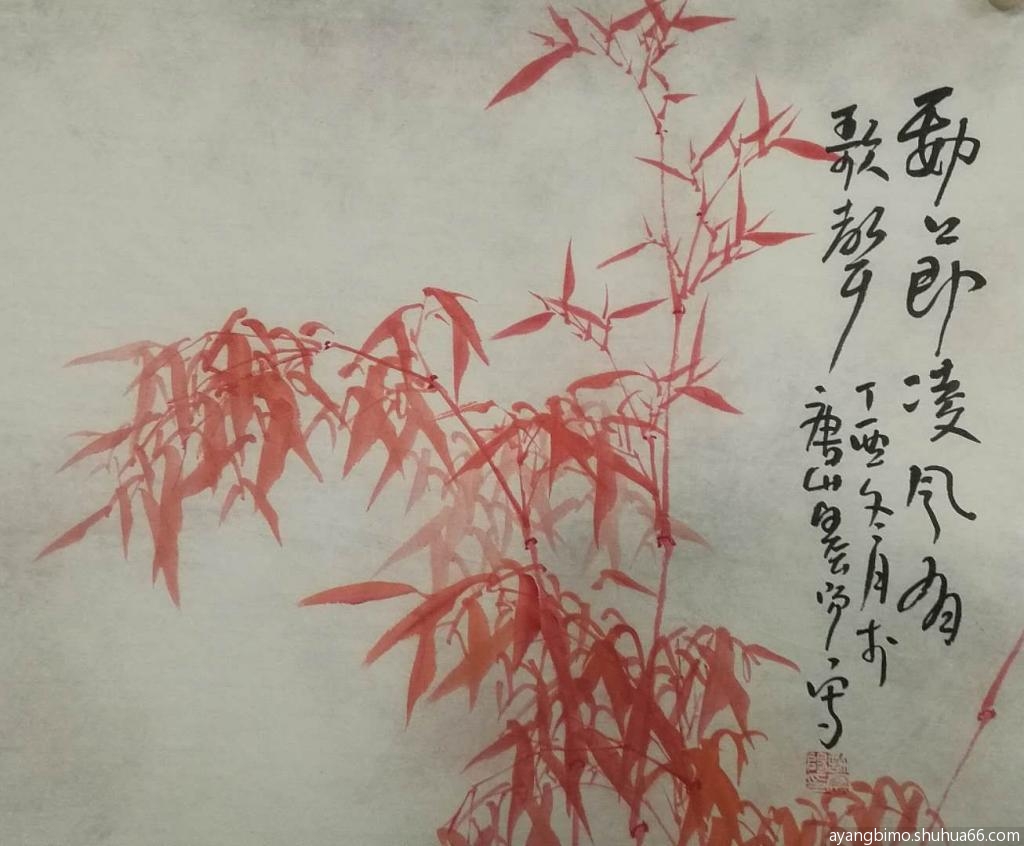 勁節凌风有
歌聲
丁酉冬月於
唐山墨寫
ayangbimo.shuhua66.com